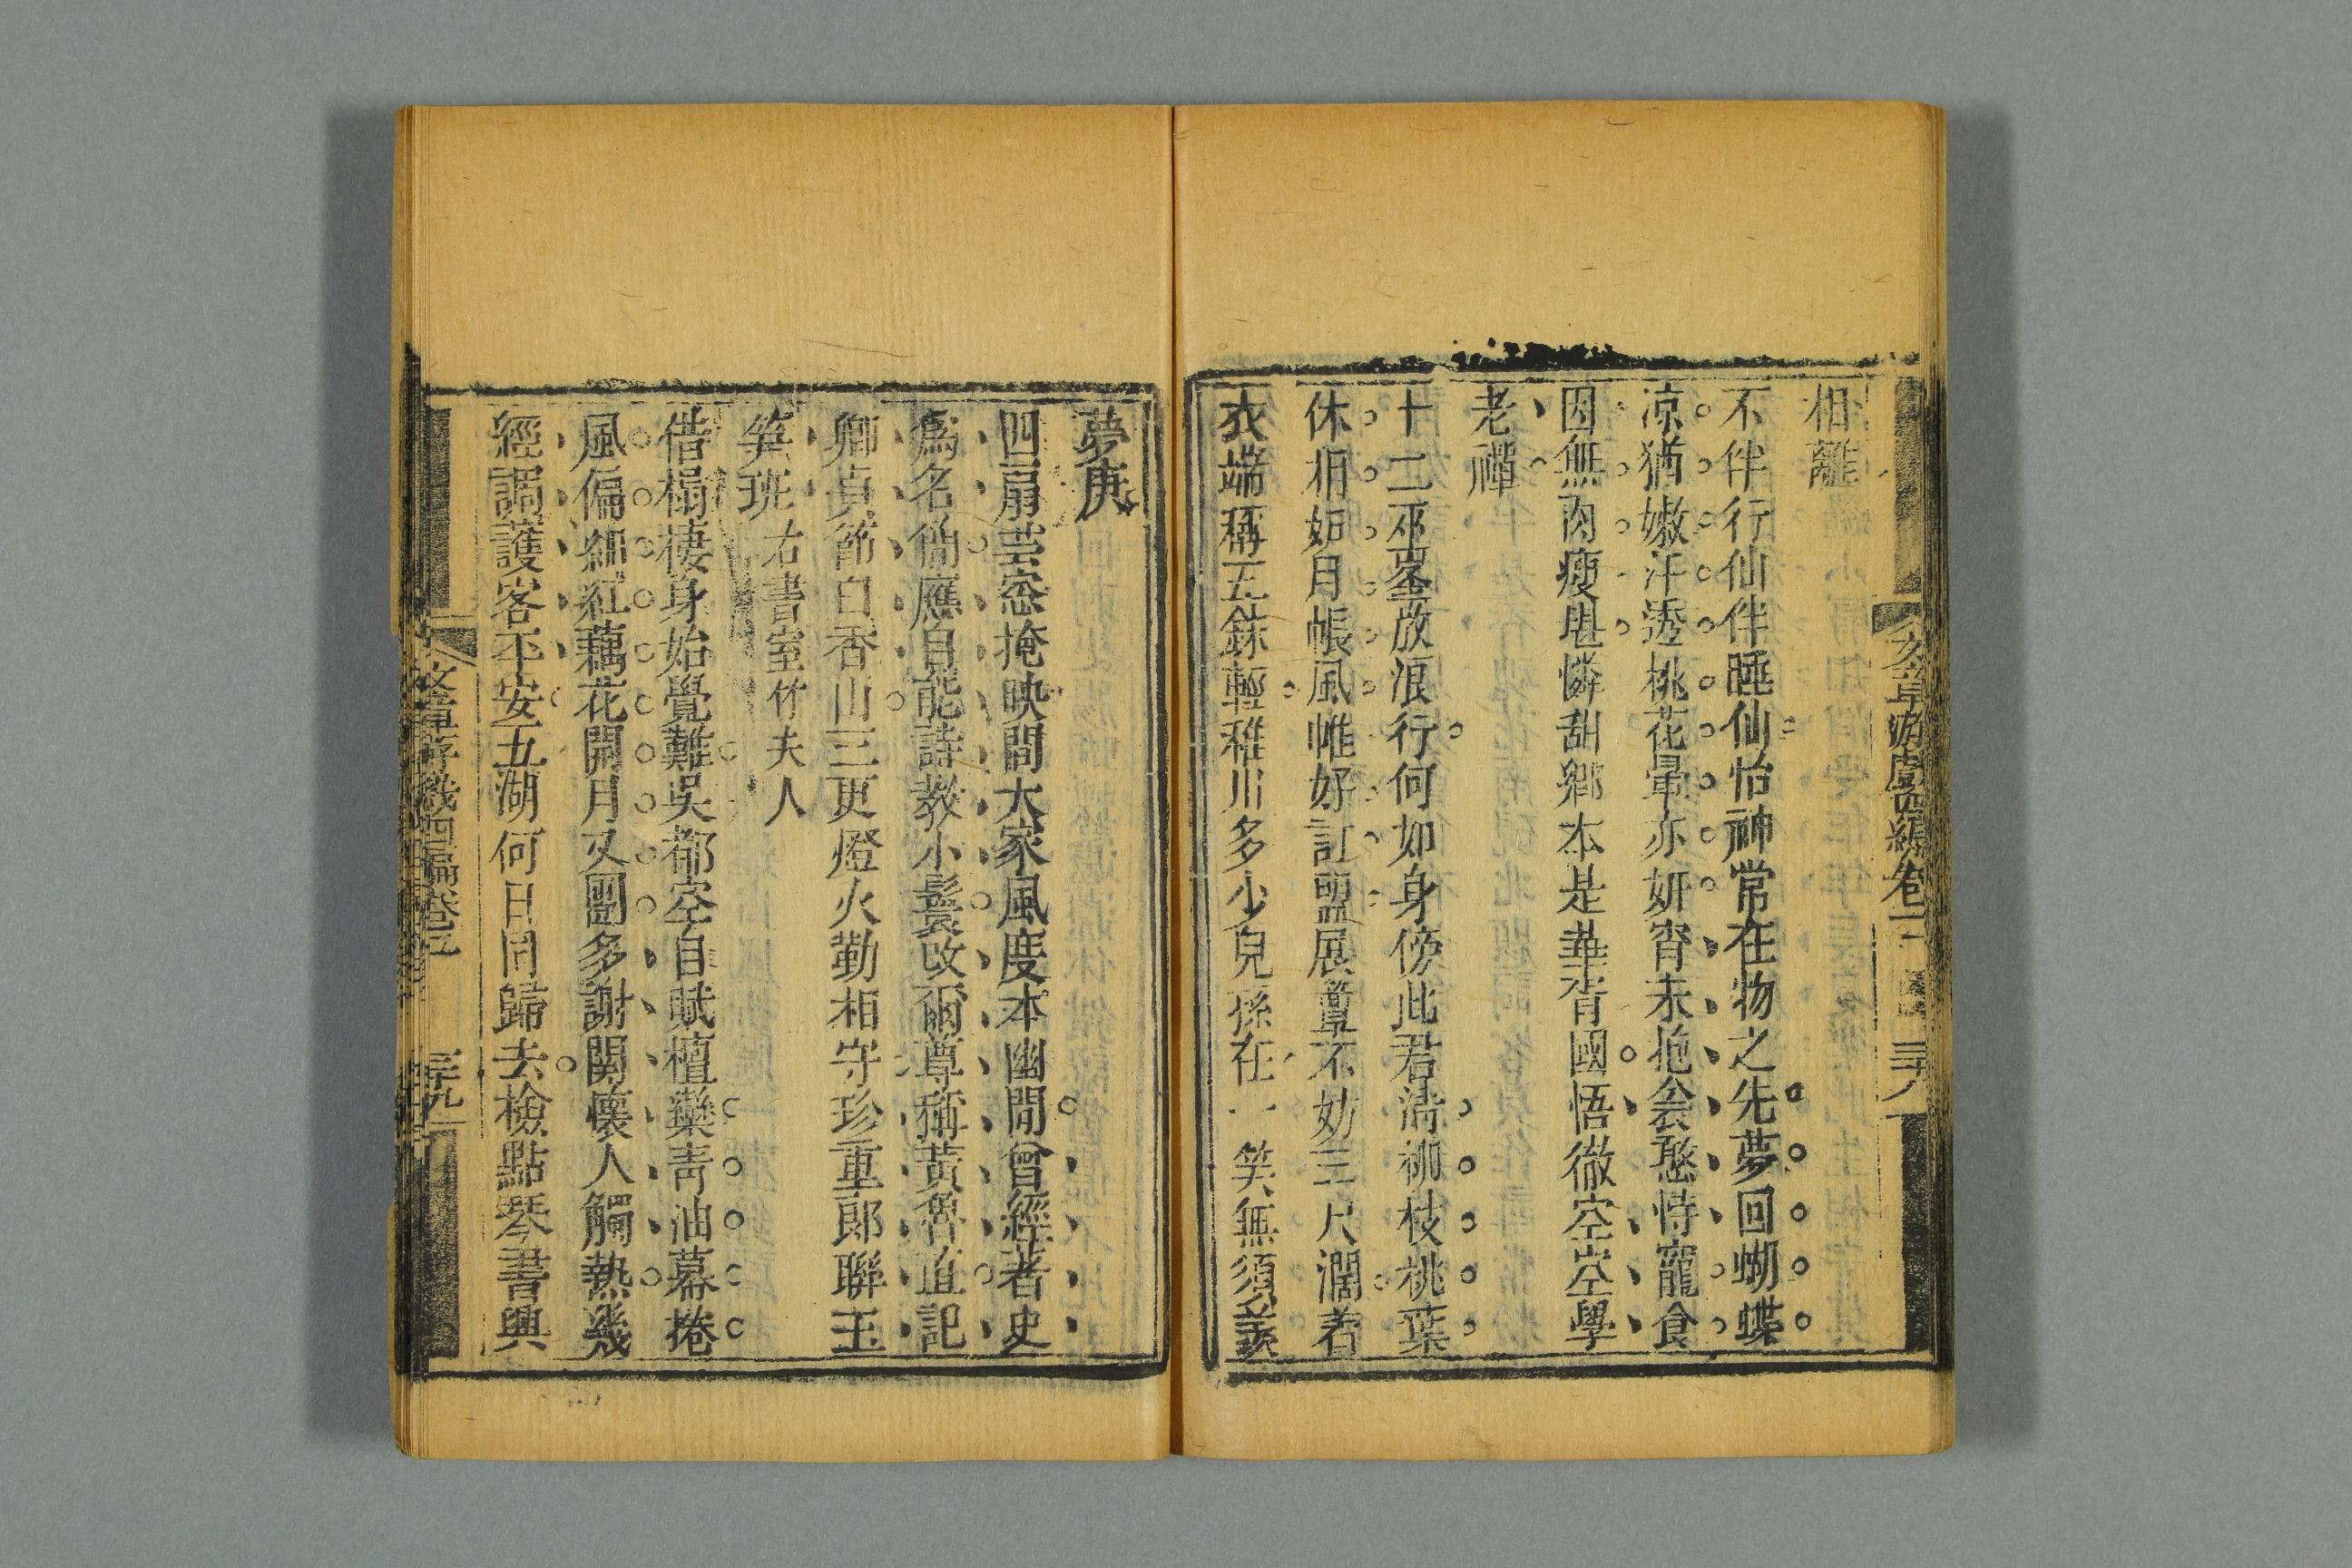 文章游戲四編卷二
三十八
相離
不伴行仙伴睡仙怡神常在物之先夢回蝴蝶
凉猶嫩汗透桃花暈亦妍宵未抱衾憨恃寵食
因無肉瘦堪憐甜鄉本是華胥國悟徹空空學
老禪
十二巫峯放浪行何如身傍此君淸柳枝桃葉
休相妬月帳風帷好訂盟展簟不妨三尺濶着
衣端稱五銖輕稚川多少兒孫在一笑無須羨
夢庚
四扇芸窓掩映間大家風度本幽閒曾經著史
爲名備應自能詩教小鬟改爾尊稱黃魯直記
卿貞節白香山三更燈火勤相守珍重郎聯玉
筍班 右書室竹夫人
借榻棲身始覺難吳都空自賦檀欒靑油幕捲
風偏細紅藕花開月又團多謝關懷人觸熱幾
經調護客平安五湖何日同歸去檢點琴書興
文章游戲四編卷二
三十九